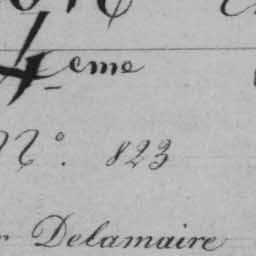 4eme
N°. 823
Delamaire